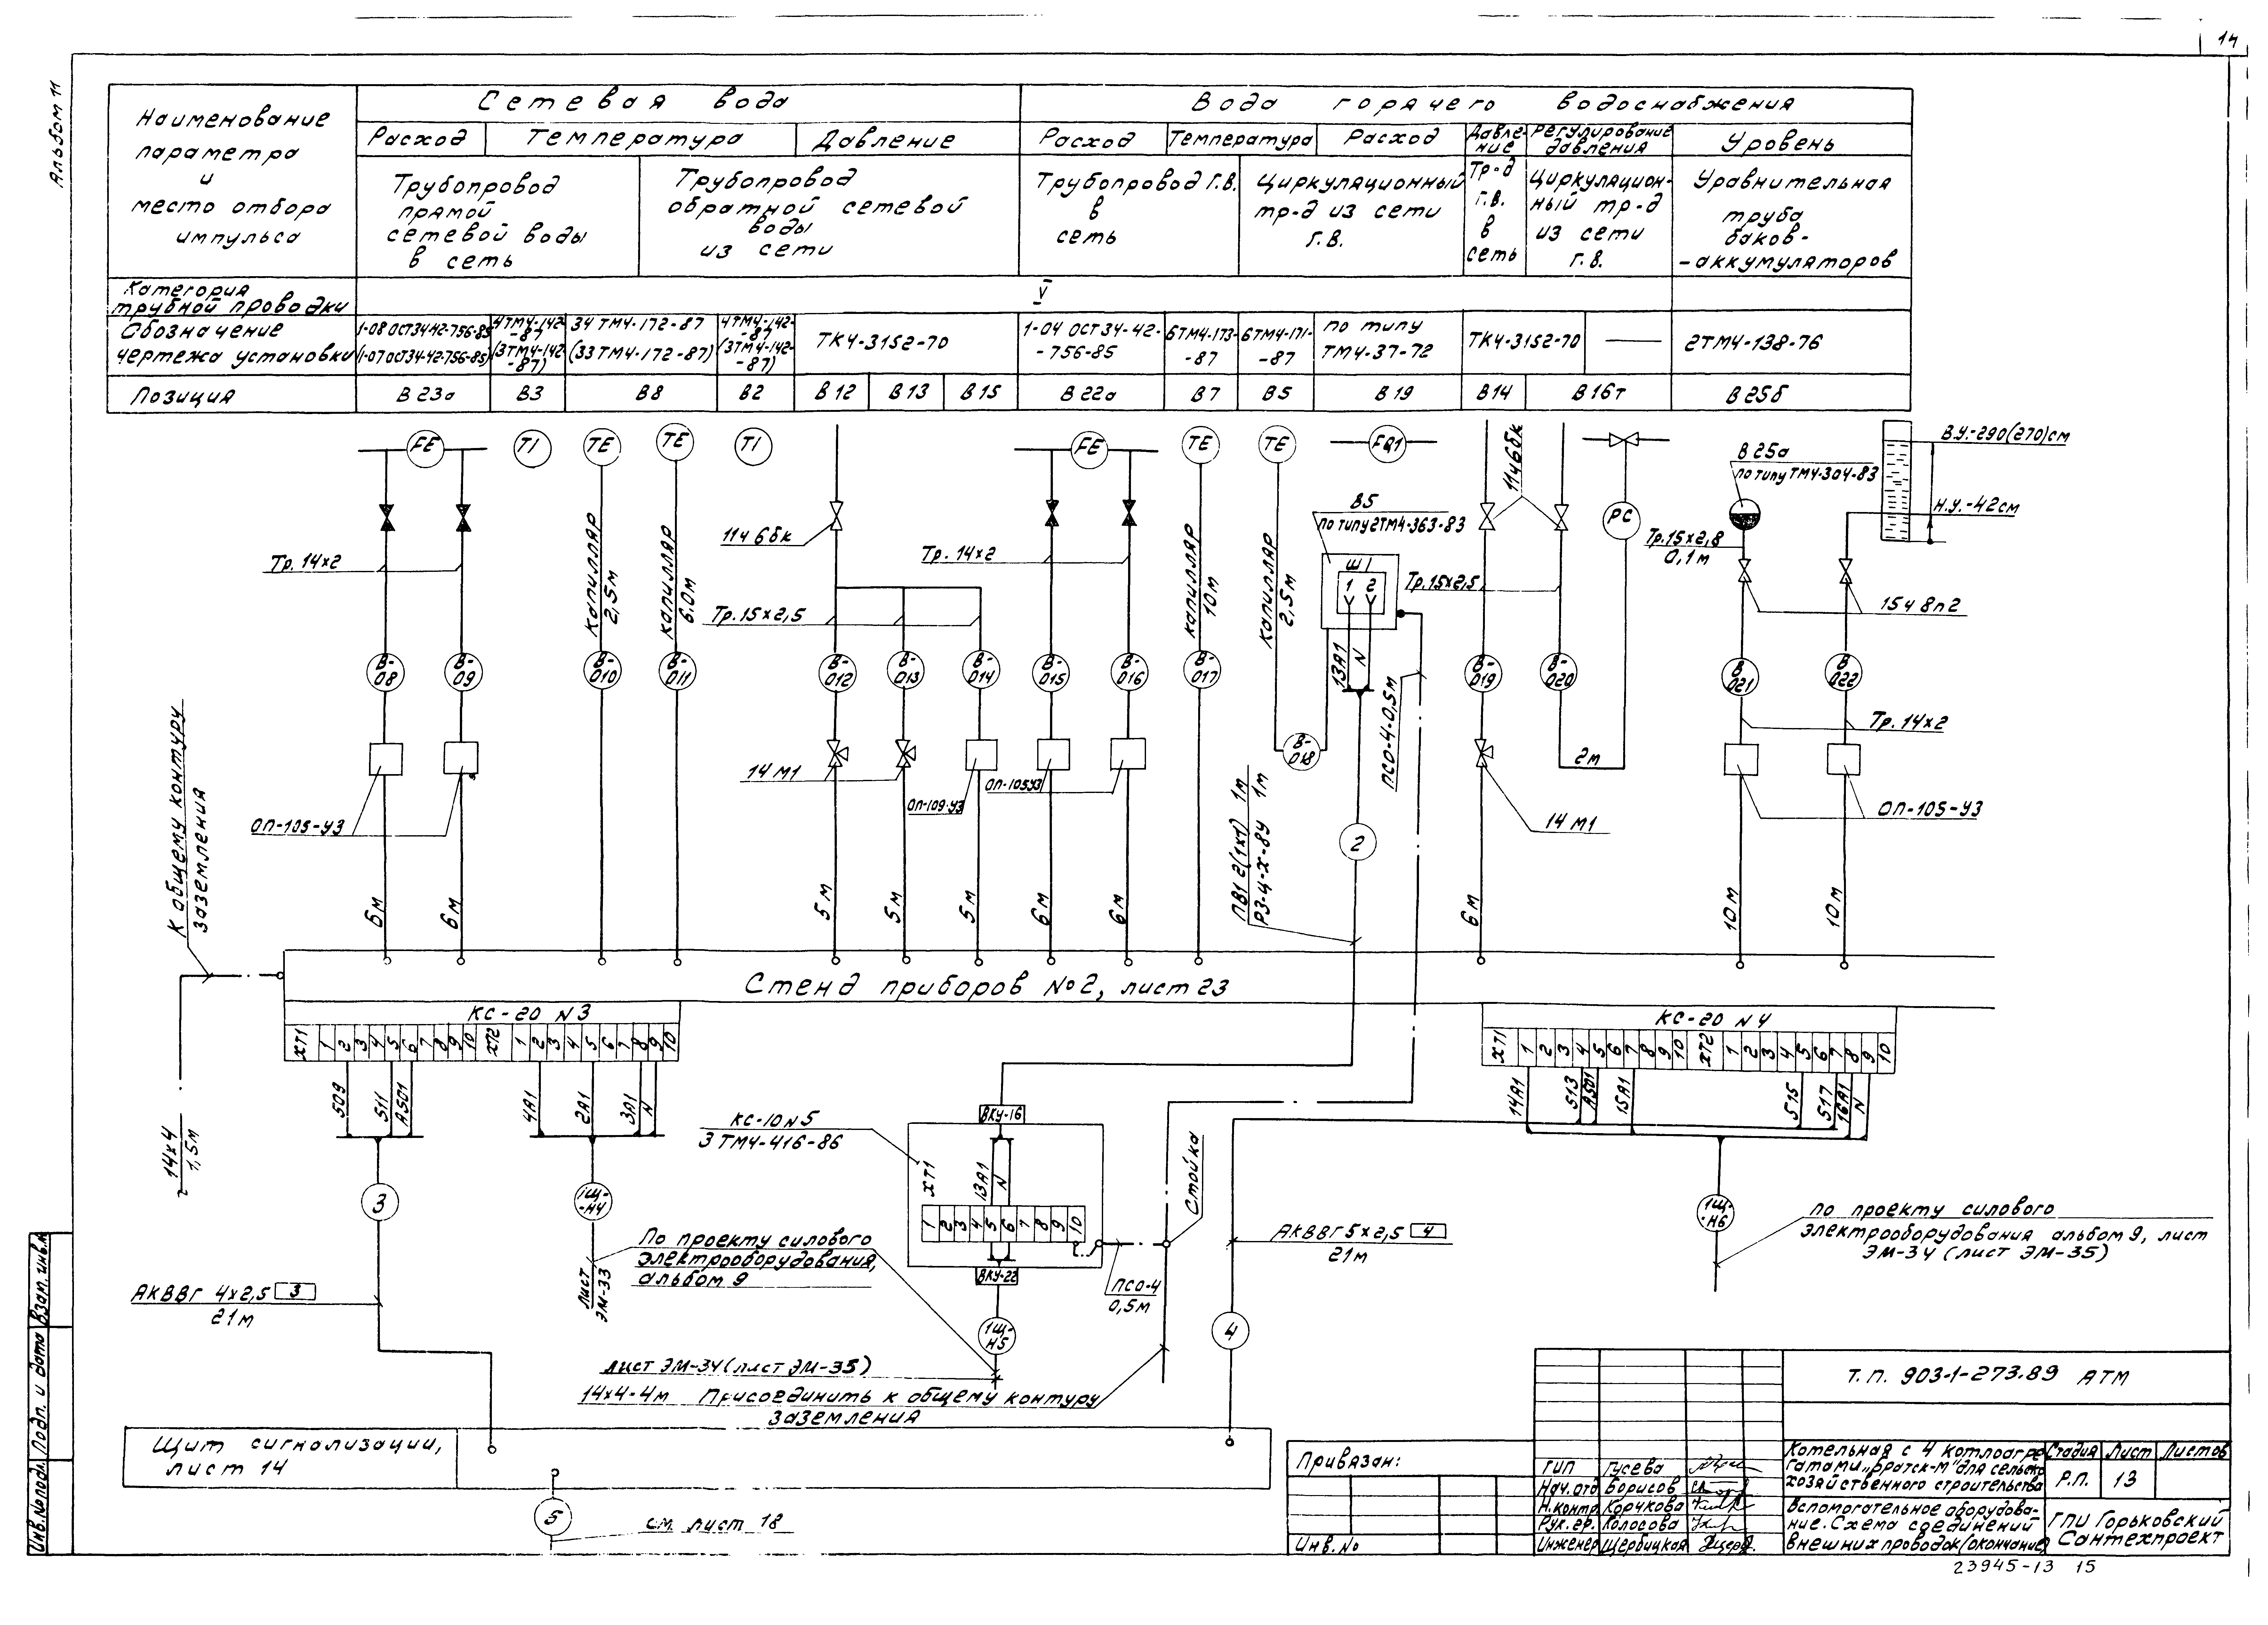 14
Альбом 11
Наименование
параметра
и
место отбора
импульса
Сетевая вода
Вода горячего водоснабжения
Расход
Температура
Давление
Расход
Температура
Расход
Давле-
ние
Регулирование
давления
Уровень
Трубопровод
прямой
сетевой воды
в сеть
Трубопровод
обратной сетевой
воды
из сети
Трубопровод Г.В.
в
сеть
Циркуляционный
тр-д из сети
Г.В.
Тр-д
Г.В.
в
сеть
Циркуляцион-
ный тр-д
из сети
Г.В.
Уравнительная
труба
баков-
-аккумуляторов
Категория
трубной проводки
V
Обозначение
чертежа установки
1-08 ОСТ34-42-756-85
(1-07 ОСТ34-42-756-85)
4ТМ4-142-
-87
(3ТМ4-142-
-87)
34 ТМ4-172-87
(33ТМ4-172-87)
4ТМ4-142-
-87
(3ТМ4-142-
-87)
ТК4-3152-70
1-04 ОСТ34-42-
-756-85
6ТМ4-173-
-87
6ТМ4-171-
-87
по типу
ТМ4-37-72
ТК4-3152-70
2ТМ4-138-76
Позиция
В23а
В3
В8
В2
В12
В13
В15
В22а
В7
В5
В19
В14
В16т
В25б
FE
TI
TE
TE
TI
FE
TE
TE
FQ1
11ч6бк
В25а
по типу ТМ4-304-83
В.У.-290(270)см
Н.У.-42см
11ч6бк
В5
по типу 2ТМ4-363-83
РС
Тр.15х2,8
0,1м
Тр. 14х2
Капилляр
2,5м
Капилляр
6.0м
Тр. 14х2
Капилляр
10м
Капилляр
2,5м
Ш1
1 2
Тр.15х2,5
15ч8п2
Тр.15х2,5
В-
08
В-
09
В-
010
В-
011
В-
012
В-
013
В-
014
В-
015
В-
016
В-
017
13А1
N
В-
019
В-
020
В
021
В
022
К общему контуру
заземления
14М1
ОП-109-У3
ОП-105У3
В-
018
ПСО-4-0,5м
2м
Тр. 14х2
ОП-105-У3
2
14М1
ОП-105-У3
ПВ1 2(1х1) 1м
РЗ-Ц-Х-8У 1м
6м
6м
5м
5м
5м
6м
6м
6м
10м
10м
Стенд приборов №2, лист 23
КС-20 N3
ХТ1 1 2 3 4 5 6 7 8 9 10 ХТ2 1 2 3 4 5 6 7 8 9 10
КС-20 N4
ХТ1 1 2 3 4 5 6 7 8 9 10 ХТ2 1 2 3 4 5 6 7 8 9 10
509
511
А501
4А1
2А1
3А1
N
14А1
513
А501
15А1
515
517
16А1
N
14х4
1,5м
КС-10N5
3ТМ4-416-86
ВКУ-16
ХТ1
13А1
N
1 2 3 4 5 6 7 8 9 10
ВКУ-22
Стойка
3
1Щ-
-Н4
1Щ-
-Н6
По проекту силового
электрооборудования,
альбом 9
лист
ЭМ-33
АКВВГ 5х2,5 4
21м
По проекту силового
электрооборудования альбом 9, лист
ЭМ-34 (лист ЭМ-35)
АКВВГ 4х2,5 3
21м
ПСО-4
0,5м
1Щ-
Н5
4
лист ЭМ-34(лист ЭМ-35)
14х4-4м Присоединить к общему контуру
заземления
Щит сигнализации,
лист 14
5
см. лист 18
Т.П. 903-1-273.89 АТМ
Привязан:
Инв.№
ГИП Гусева
Нач.отд Борисов
Н.контр. Корчкова
Рук.гр. Колосова
Инженер Щербицкая
Котельная с 4 котлоагре
гатами „Братск-М" для сельско
хозяйственного строительства
Стадия Лист Листов
Р.П. 13
Вспомогательное оборудова-
ние. Схема соединений
внешних проводок(окончание)
ГПИ Горьковский
Сантехпроект
Инв.№подл. Подп. и дата Взам.инв.№
23945-13 15